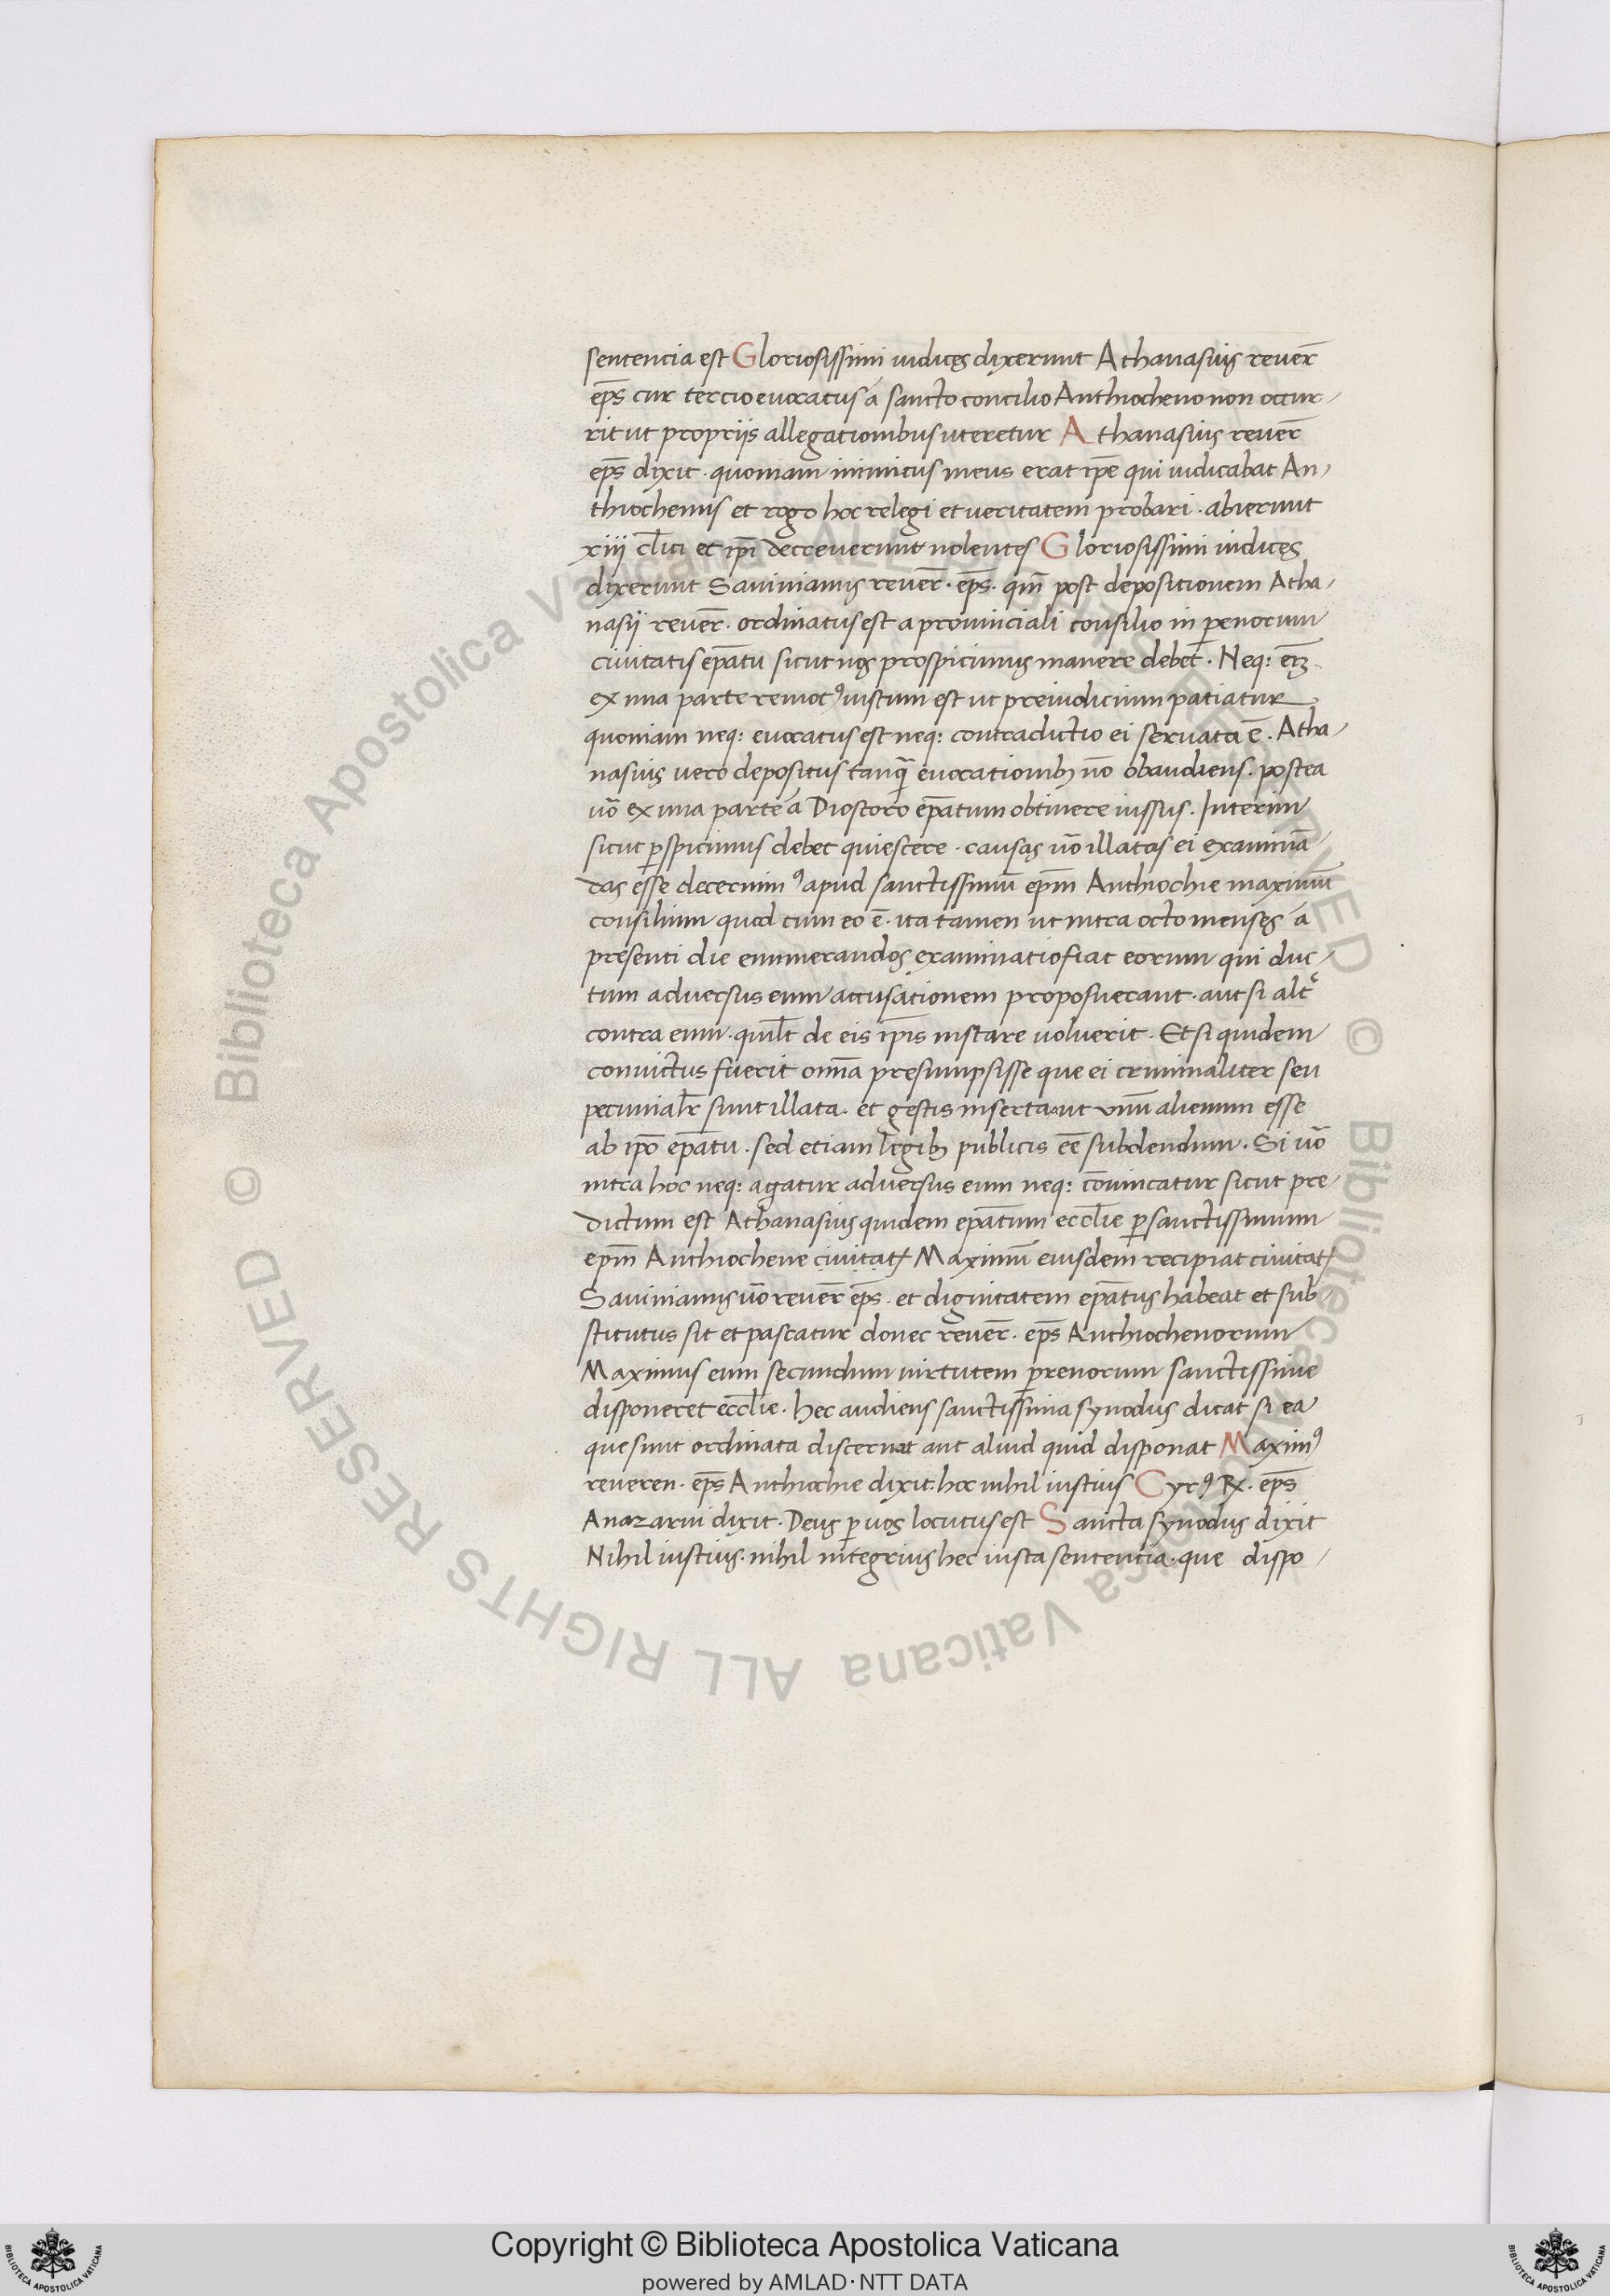 sentencia est Gloriosissimi iudices dixerunt Athanasius reuer̄
ep̄s cur tercio euocatus á sancto concilio Anthiocheno non occur-
rit ut propriis allegationibus uteretur Athanasius reuer̄
ep̄s dixit · quoniam inimicus meus erat ip̄e qui iudicabat An-
thiochenus et rogo hoc relegi et ueritatem probari · abierunt
xiii cl̄ici et ip̄i decreuerunt nolentes Gloriosissimi iudices
dixerunt Sauinianus reuer̄ · ep̄s · qm̄ post depositionem Atha-
nasii reuer̄ · ordinatus est a prouinciali consilio in perenorum
ciuitatis ep̄atu sicut nos prospicimus manere debet̄ · Neq: em̄
ex una parte remotꝰ iustum est ut preiudicium patiatur
quoniam neq: euocatus est neq: contradictio ei seruata ē · Atha-
nasius uero depositus tanqꝫ euocationibꝫ nō obaudiens · postea
uō ex una parte á Dioscoro ep̄atum obtinere iussus · Interim
sicut ꝑspicimus debet quiescere · causas uō illatas ei examinā
das esse decernimꝰ apud sanctissimū ep̄m Anthiochie maximū
consilium quod cum eo ē · ita tamen ut intra octo menses á
presenti die enumerandos examinatio fiat eorum qui duc-
tum aduersus eum accusationem proposuerant · aut si alt̄
contra eum · quil̄t de eis ip̄is instare uoluerit · Et si quidem
conuictus fuerit om̄a presumpsisse que ei criminaliter seu
pecunial̄r sunt illata · et gestis inserta · ut unū alienum esse
ab ip̄o ep̄atu · sed etiam legibꝫ publicis eē subdendum · Si uō
intra hoc neq: agatur aduersus eum neq: cōuincatur sicut pre-
dictum est Athanasius quidem ep̄atum eccl̄ie ꝑ sanctissimum
ep̄m Anthiochene ciuitatꝭ Maximū eiusdem recipiat ciuitatꝭ
Sauinianus uō reuer̄ ep̄s · et dignitatem ep̄atus habeat et sub-
stitutus sit et pascatur donec reuer̄ · ep̄s Anthiochenorum
Maximus eum secundum uirtutem ꝑrenorum sanctissime
disponeret eccl̄ie · hec audiens sanctissima synodus dicat si ea
que sunt ordinata discernat aut aliud quid disponat Maximꝰ
reueren · ep̄s Anthiochie dixit: hoc nihil iustius Cyrꝰ R̄x · ep̄s
Anazarui dixit · Deus ꝑ uos locutus est Sancta synodus dixit
Nihil iustius · nihil integrius hec iusta sentencia · que dispo-
© Biblioteca Apostolica Vaticana ALL RIGHTS RESERVED © Biblioteca Apostolica Vaticana ALL RIGHTS RESERVED
Copyright © Biblioteca Apostolica Vaticana
powered by AMLAD·NTT DATA
BIBLIOTECA APOSTOLICA VATICANA
BIBLIOTECA APOSTOLICA VATICANA